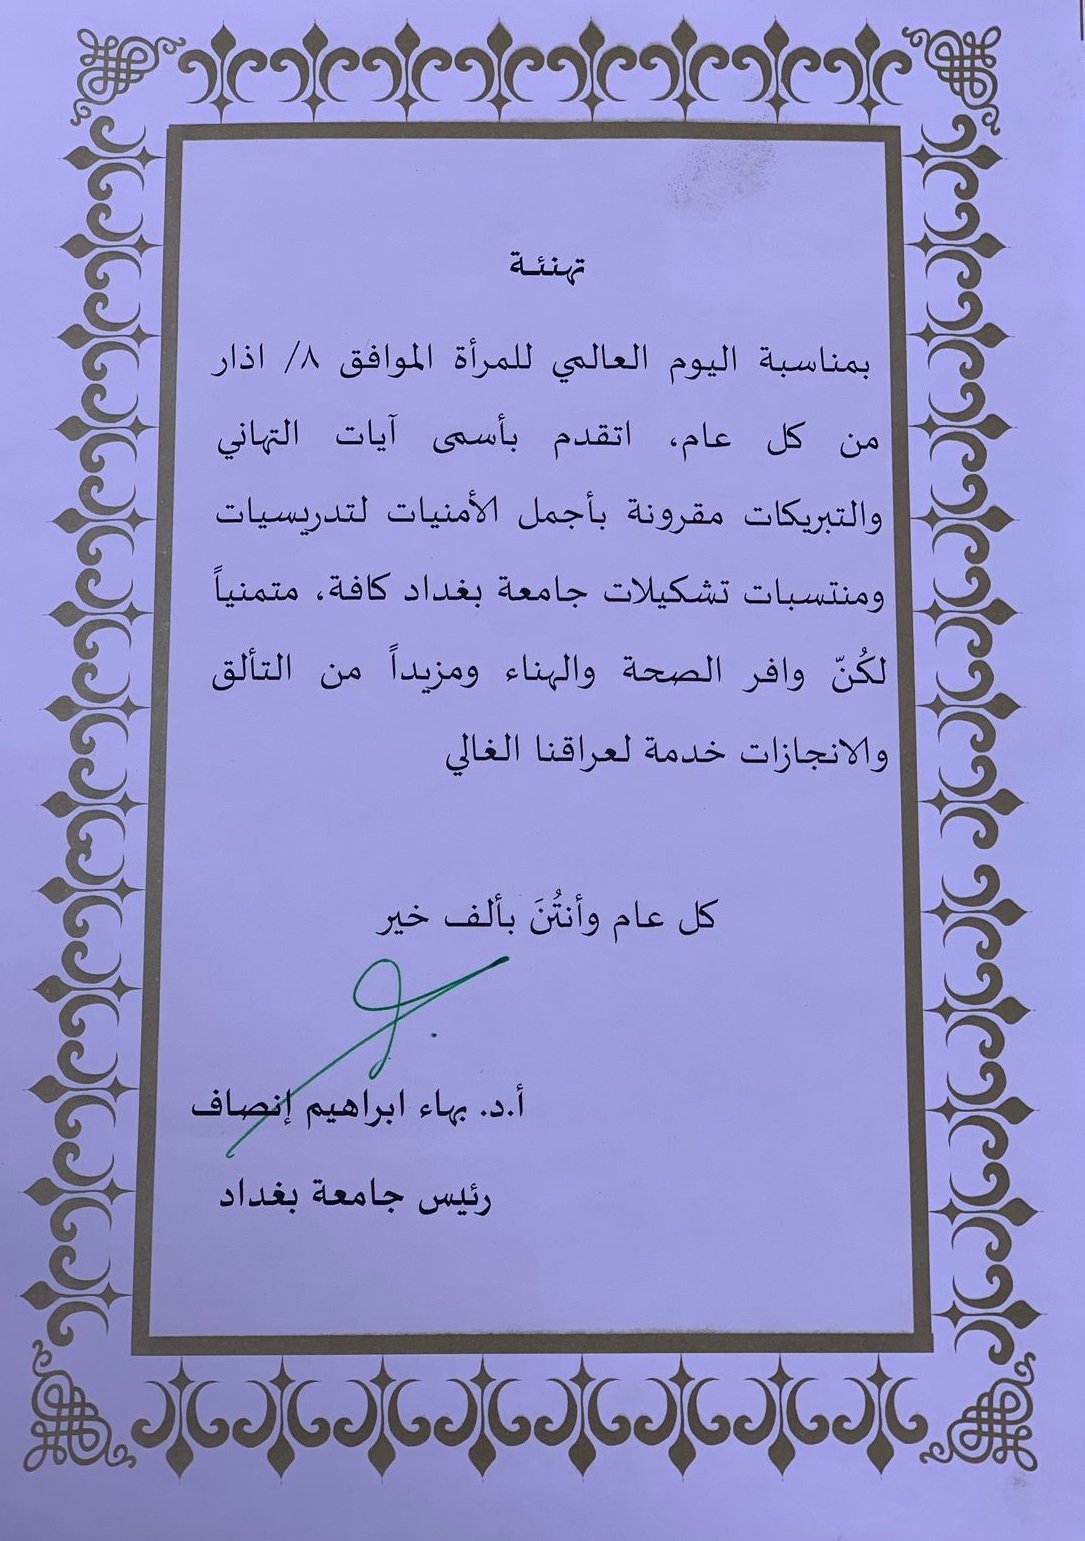 تهنئة
بمناسبة اليوم العالمي للمرأة الموافق ٨/ اذار
من كل عام، اتقدم بأسمى آيات التهاني
والتبريكات مقرونة بأجمل الأمنيات لتدريسيات
ومنتسبات تشكيلات جامعة بغداد كافة، متمنياً
لكُنّ وافر الصحة والهناء ومزيداً من التألق
والانجازات خدمة لعراقنا الغالي
كل عام وأنتُنَ بألف خير
أ.د. بهاء ابراهيم إنصاف
رئيس جامعة بغداد